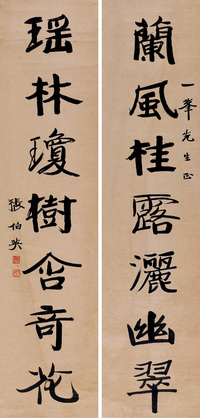 蘭風桂露灑幽翠
一峯先生正
瑶林瓊樹含奇花
張伯英